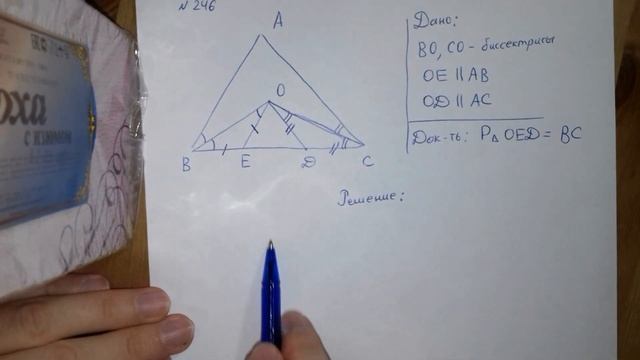 N 246
A
O
B E D C
Дано:
BO, CO - биссектрисы
OE || AB
OD || AC
Док-ть: P△ OED = BC
Решение:
оха
с изюмом